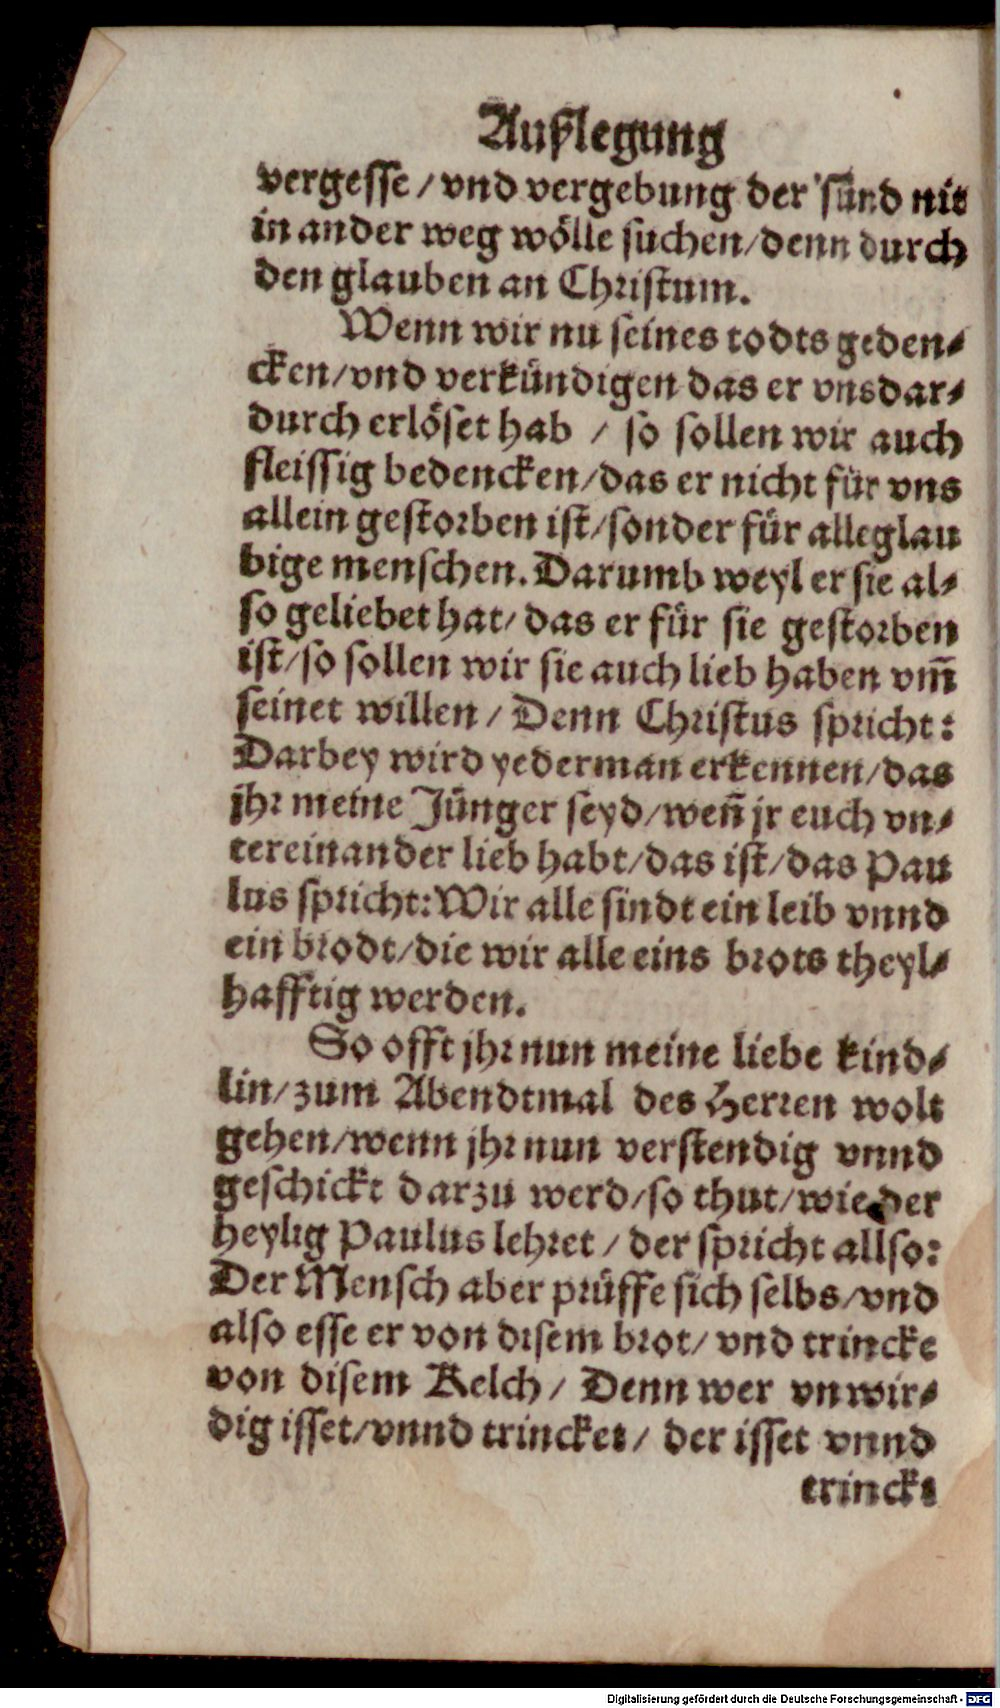 Außlegung
vergesse / vnd vergebung der sünd nit
in ander weg wölle suchen / denn durch
den glauben an Christum.
Wenn wir nu seines todts geden-
cken / vnd verkündigen das er vns dar-
durch erlöset hab / so sollen wir auch
fleissig bedencken / das er nicht für vns
allein gestorben ist / sonder für alle glau
bige menschen. Darumb weyl er sie al-
so geliebet hat / das er für sie gestorben
ist / so sollen wir sie auch lieb haben vm̄
seinet willen / Denn Christus spricht:
Darbey wird yederman erkennen / das
jhr meine Jünger seyd / weñ jr euch vn-
tereinander lieb habt / das ist / das Pau
lus spricht: Wir alle sindt ein leib vnnd
ein brodt / die wir alle eins brots theyl-
hafftig werden.
So offt jhr nun meine liebe kind-
lin / zum Abendtmal des Herren wolt
gehen / wenn jhr nun verstendig vnnd
geschickt darzu werd / so thut / wie der
heylig Paulus lehret / der spricht allso:
Der Mensch aber prüffe sich selbs / vnd
also esse er von disem brot / vnd trincke
von disem Kelch / Denn wer vnwir-
dig isset / vnnd trincket / der isset vnnd
trinckt
Digitalisierung gefördert durch die Deutsche Forschungsgemeinschaft - DFG